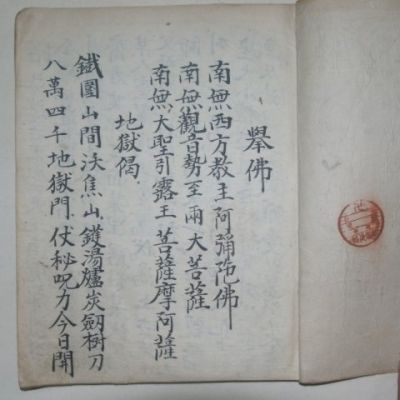 擧佛
南無西方教主阿彌陀佛
南無觀音勢至兩大菩薩
南無大聖引露王菩薩摩阿薩
地獄偈
鐵圍山間沃焦山鑊湯爐炭劍樹刀
八萬四千地獄門仗秘呪力今日開